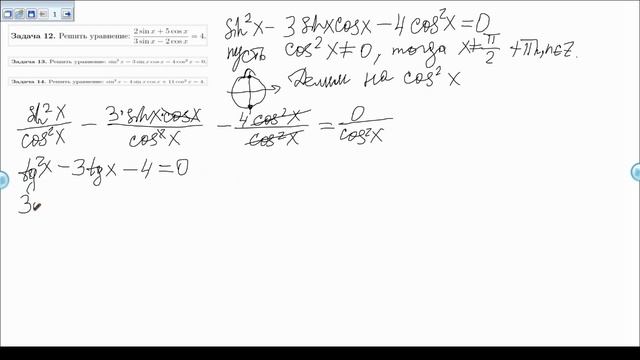 1
Задача 12. Решить уравнение: (2 sin x + 5 cos x)/(3 sin x − 2 cos x) = 4.
Задача 13. Решить уравнение: sin²x − 3 sin x cos x − 4 cos²x = 0.
Задача 14. Решить уравнение: sin²x − 4 sin x cos x + 11 cos²x = 4.
sin²x − 3 sin x cos x − 4 cos²x = 0
пусть cos²x ≠ 0, тогда x ≠ π/2 + πn, n∈Z.
Делим на cos²x
sin²x/cos²x − 3·sin x·cos x/cos²x − 4 cos²x/cos²x = 0/cos²x
tg²x − 3tg x − 4 = 0
З